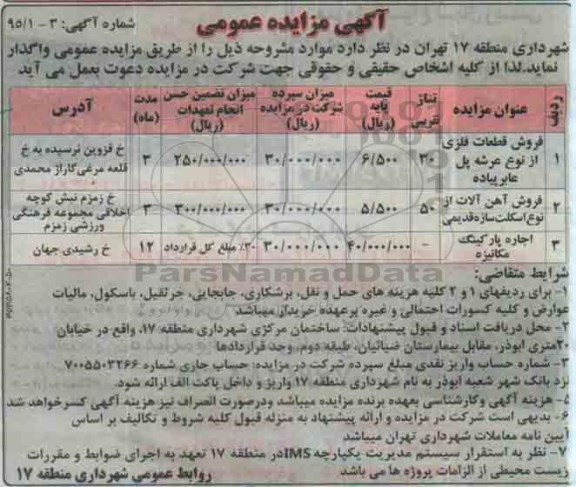 آگهی مزایده عمومی
شماره آگهی: ۳ - ۹۵/۱
شهرداری منطقه ۱۷ تهران در نظر دارد موارد مشروحه ذیل را از طریق مزایده عمومی واگذار
نماید. لذا از کلیه اشخاص حقیقی و حقوقی جهت شرکت در مزایده دعوت بعمل می آید
ردیف | عنوان مزایده | تناژ تقریبی | قیمت پایه (ریال) | میزان سپرده شرکت در مزایده (ریال) | میزان تضمین حسن انجام تعهدات (ریال) | مدت (ماه) | آدرس
۱ | فروش قطعات فلزی از نوع عرشه پل عابر پیاده | ۳۰ | ۶/۵۰۰ | ۳۰/۰۰۰/۰۰۰ | ۲۵۰/۰۰۰/۰۰۰ | ۳ | خ قزوین نرسیده به خ قلعه مرغی گاراژ محمدی
۲ | فروش آهن آلات از نوع اسکلت سازه قدیمی | ۵۰ | ۵/۵۰۰ | ۳۰/۰۰۰/۰۰۰ | ۳۰۰/۰۰۰/۰۰۰ | ۳ | خ زمزم نبش کوچه اخلاقی مجموعه فرهنگی ورزشی زمزم
۳ | اجاره پارکینگ مکانیزه | - | ۴۰/۰۰۰/۰۰۰ | ۳۰/۰۰۰/۰۰۰ | ۳۰٪ مبلغ کل قرارداد | ۱۲ | خ رشیدی جهان
ParsNamadData
شرایط متقاضی:
۱- برای ردیفهای ۱ و ۲ کلیه هزینه های حمل و نقل، برشکاری، جابجایی، جرثقیل، باسکول، مالیات
عوارض و کلیه کسورات احتمالی و غیره برعهده خریدار میباشد
۲- محل دریافت اسناد و قبول پیشنهادات: ساختمان مرکزی شهرداری منطقه ۱۷، واقع در خیابان
۲۰متری ابوذر، مقابل بیمارستان ضیائیان، طبقه دوم، وجد قراردادها
۳- شماره حساب واریز نقدی مبلغ سپرده شرکت در مزایده: حساب جاری شماره ۷۰۰۵۵۰۳۲۶۶
نزد بانک شهر شعبه ابوذر به نام شهرداری منطقه ۱۷ واریز و داخل پاکت الف ارائه شود.
۵- هزینه آگهی وکارشناسی بعهده برنده مزایده میباشد ودرصورت انصراف نیز هزینه آگهی کسرخواهد شد
۶- بدیهی است شرکت در مزایده و ارائه پیشنهاد به منزله قبول کلیه شروط و تکالیف بر اساس
آیین نامه معاملات شهرداری تهران میباشد
۷- نظر به استقرار سیستم مدیریت یکپارچه IMSدر منطقه ۱۷ تعهد به اجرای ضوابط و مقررات
زیست محیطی از الزامات پروژه ها می باشد.
روابط عمومی شهرداری منطقه ۱۷